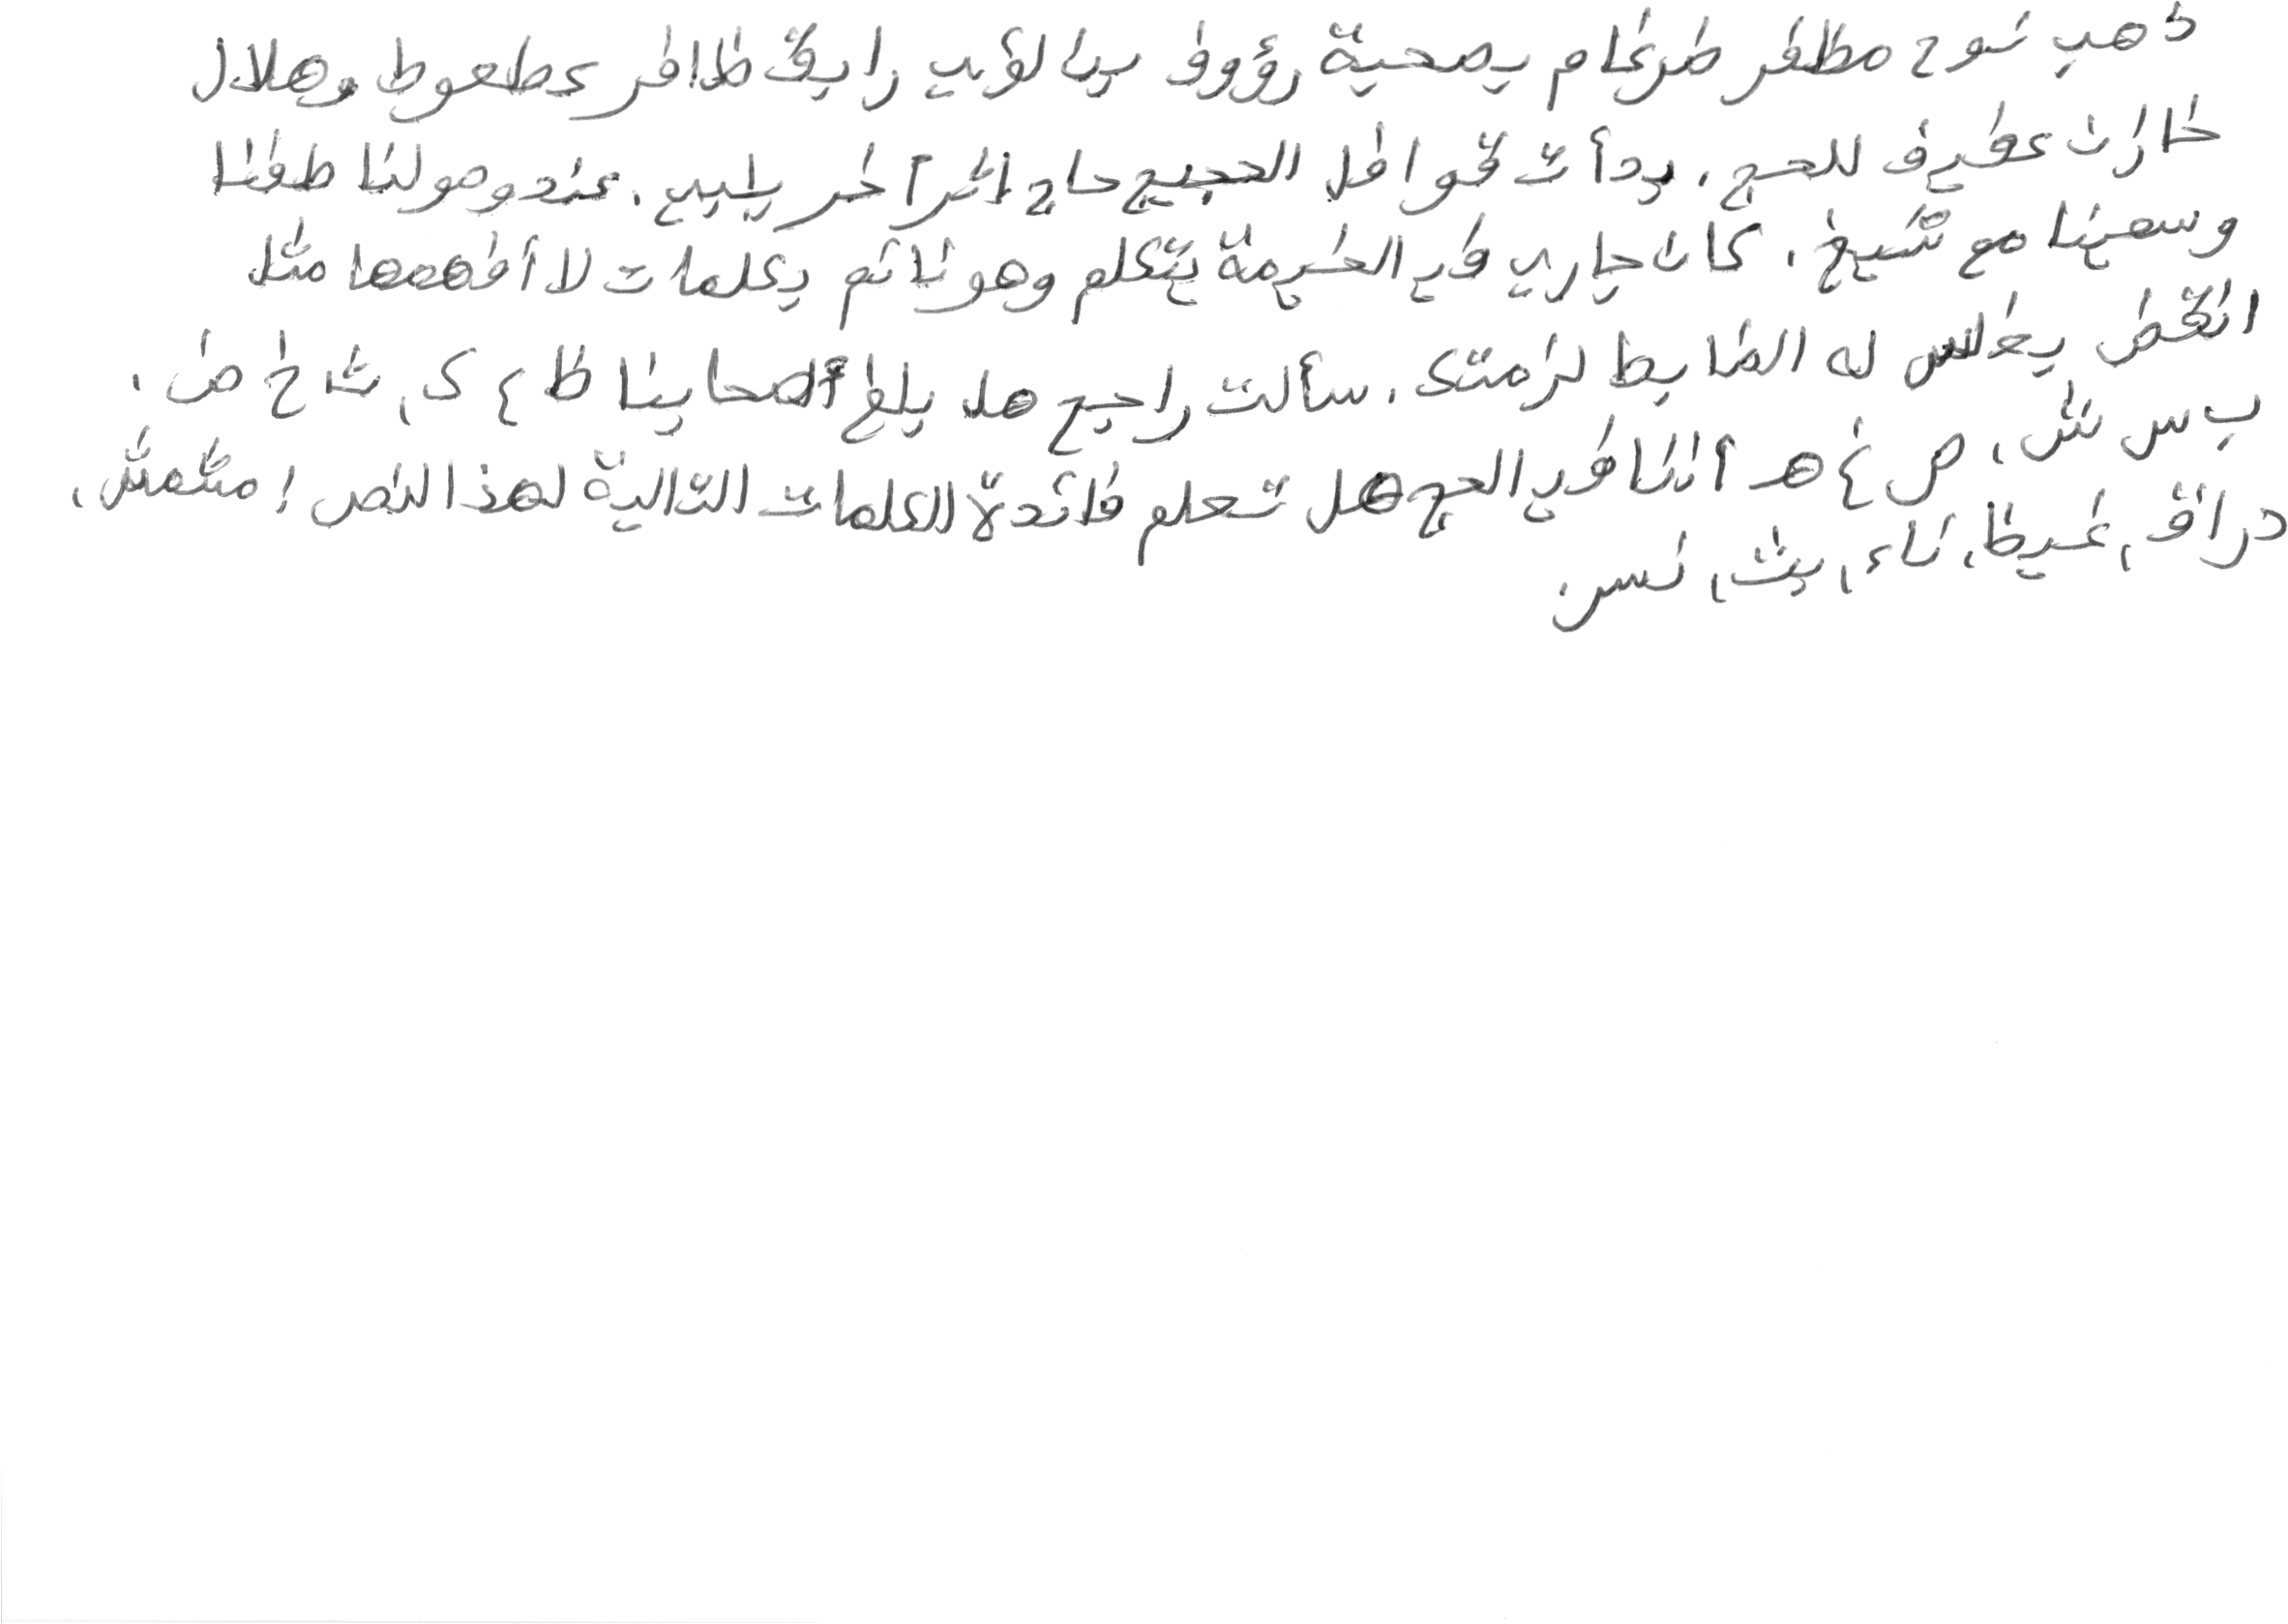 ذهب نوح مظفر ضرغام بصحبة رؤوف بن لؤي رايق ظافر عطعوط وهلال
خازن عفيف للحج . بدأت قوافل الحجيج حاج إثر آخر بلبيع . عند وصولنا طفنا
وسعينا مع شيخ . كان جاري في الخيمة يتكلم وهو نائم بكلمات لا أفهمها مثل
انقض بغلس له الضابط لزمتك . سألت راجح هل بلغ أصحابنا ظ ع ك ، ث خ ض ،
ب س ش ، ص غ هـ أننا في الحج هل تعلم فائدة الكلمات التالية لهذا النص ؛ مشمش ،
دراق ، غيظ ، ناء ، بث ، نسر .